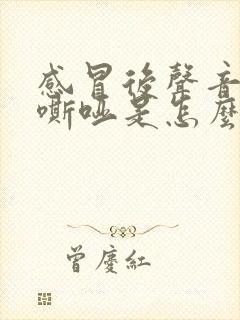 感冒後聲音
嘶啞是怎麼
曾慶紅